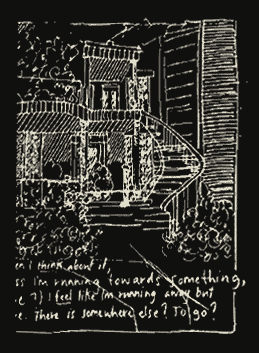 en I think about it,
ss I'm running towards something,
I feel like I'm running away but
e. There is somewhere else? To go?